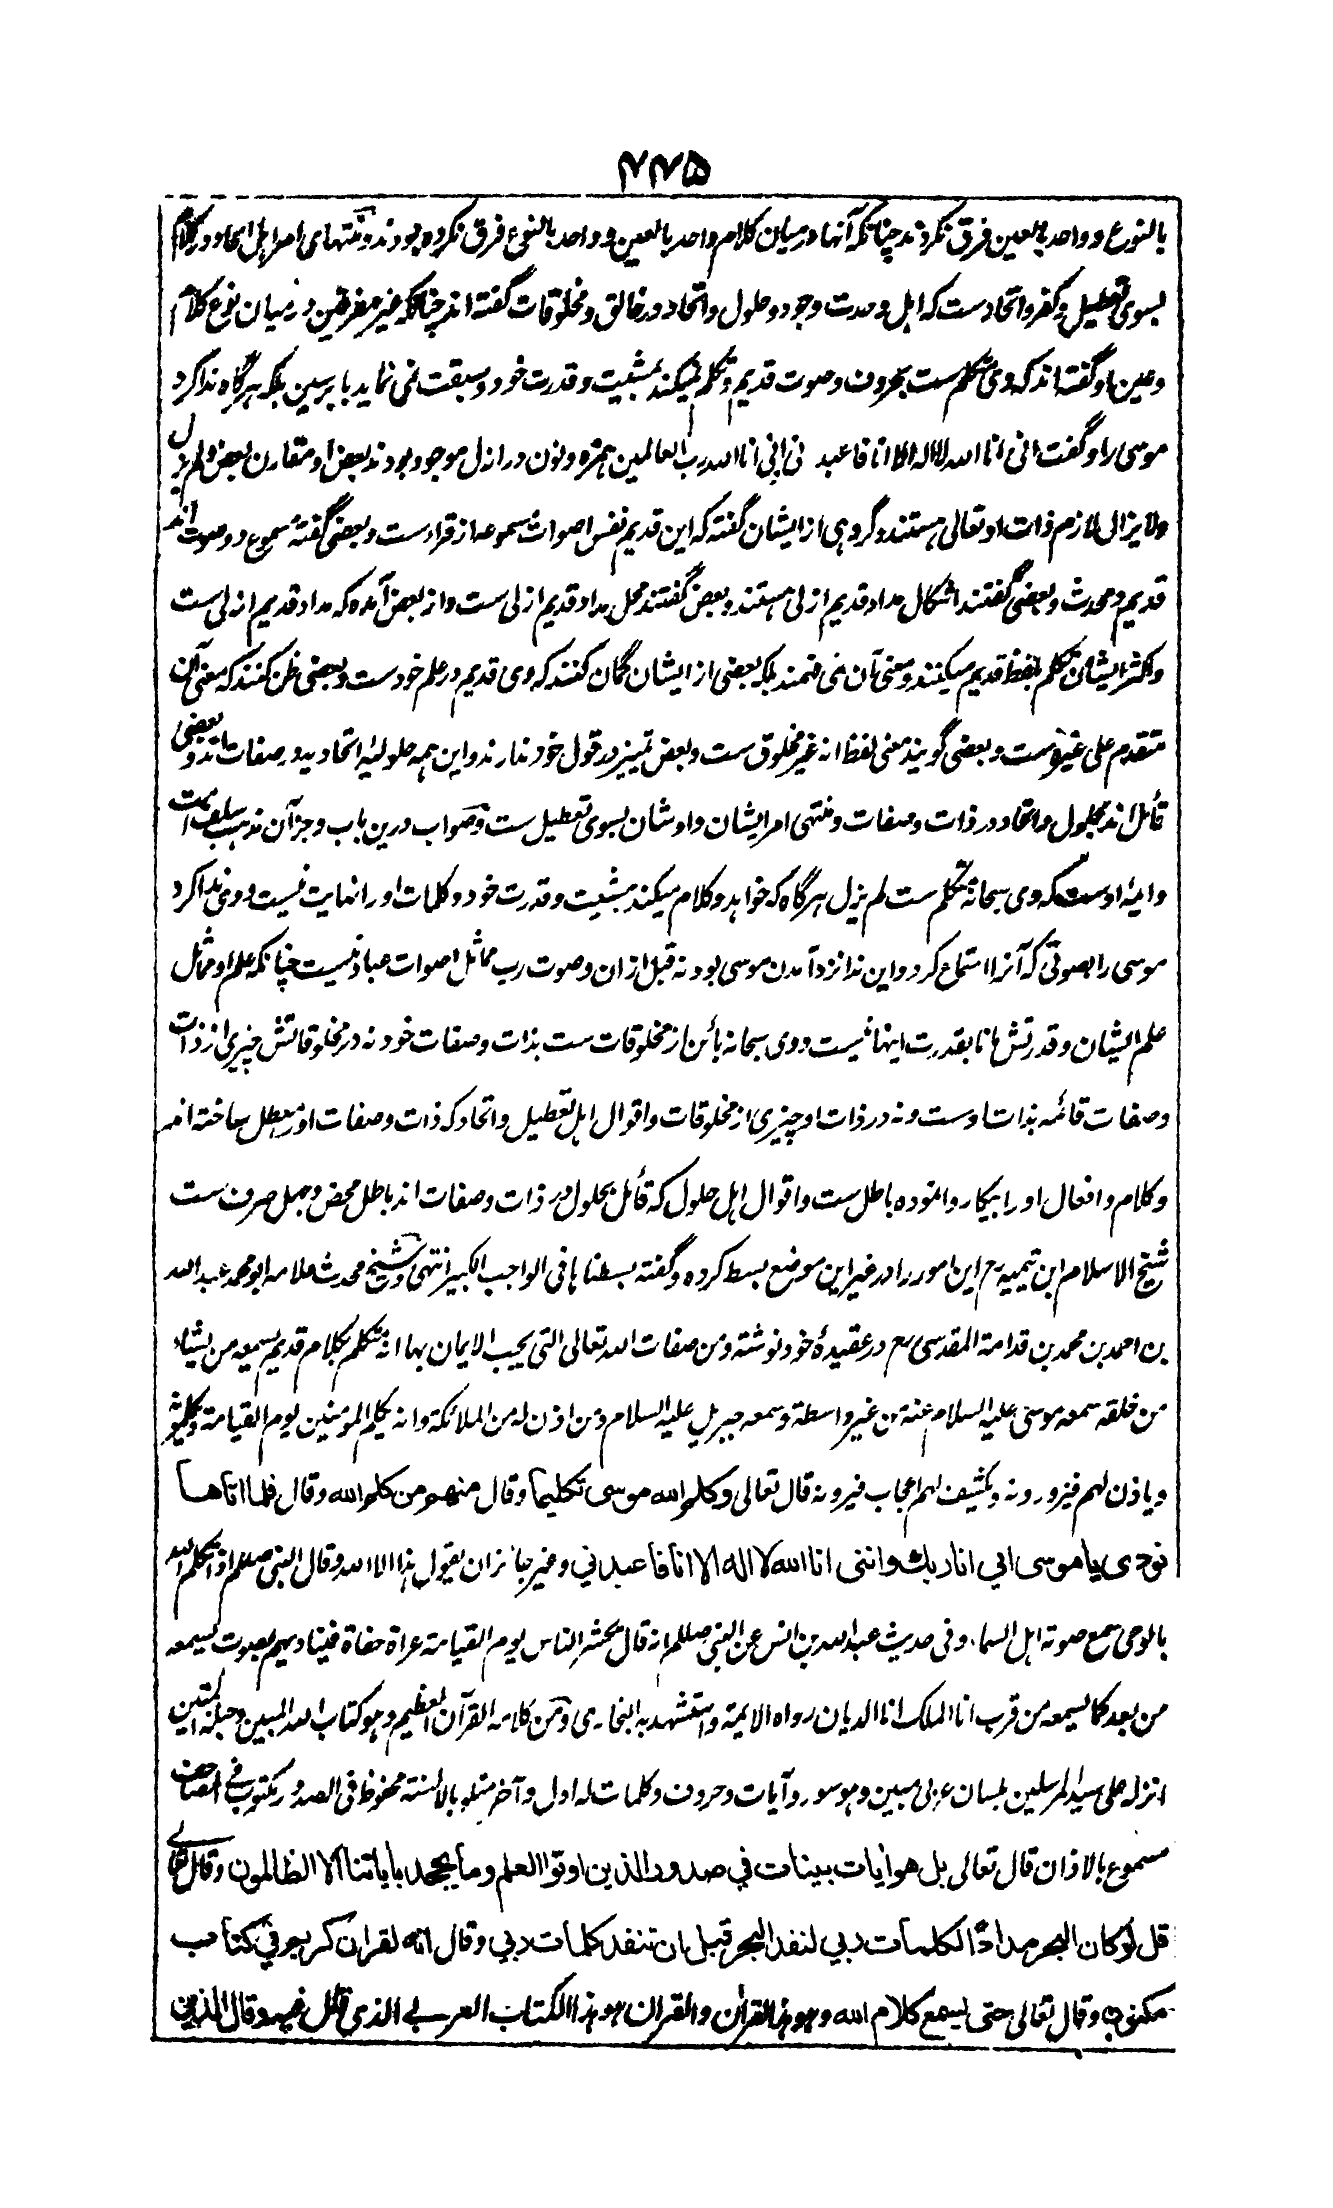 ۴۴۵
بالنوع و واحد بالعین فرق نکردند چنانکه آنها در میان کلام واحد بالعین و واحد بالنوع فرق نکرده بودند و منتهای امر اهل اتحاد در کلام
بسوی تعطیل و کفر و اتحادست که اهل وحدت وجود و حلول و اتحاد در خالق و مخلوقات گفته اند چنانکه غیر مفرقین در میان نوع کلام
و عین او گفته اند که وی متکلم ست بحروف و صوت قدیم و تکلم نمیکند بمشیت و قدرت خود و سبقت نمی نماید با بر سین بلکه هرگاه ندا کرد
موسی را و گفت انی انا الله لا اله الا انا فاعبدنی انی انا الله رب العالمین همزه و نون در ازل موجود بودند بعض او مقارن بعض و لم یزل
ولا یزال لازم ذات او تعالی هستند و گروهی از ایشان گفته که این قدیم نفس اصوات مسموعه از قراءست و بعضی گفته مسموع دو صوت اند
قدیم و محدث و بعضی گفتند اشکال مداد قدیم ازلی هستند و بعض گفتند محل مداد قدیم ازلی ست و از بعض آمده که مداد قدیم ازلی ست
و اکثر ایشان تکلم بلفظ قدیم میکنند و معنی آن نمی فهمند بلکه بعضی از ایشان گمان کنند که وی قدیم در علم خودست و بعضی ظن کنند که معنی آن
متقدم علی غیره ست و بعضی گویند معنی لفظ انه غیر مخلوق ست و بعض تمییز در قول خود ندارند و این همه حلولیه اتحادیه در صفات اند و بعضی
قائل اند بحلول و اتحاد در ذات و صفات و منتهی امر ایشان و اوشان بسوی تعطیل ست و صواب درین باب و جز آن مذهب سلف امت
و ایمه اوست که وی سبحانه متکلم ست لم یزل هرگاه که خواهد و کلام میکند بمشیت و قدرت خود و کلمات او را نهایت نیست و وی ندا کرد
موسی را بصوتی که آنرا استماع کرد و این ندا نزد آمدن موسی بود نه قبل ازان و صوت رب مماثل اصوات عباد نیست چنانکه علم او مماثل
علم ایشان و قدرتش مانا بقدرت اینها نیست و وی سبحانه بائن از مخلوقات ست بذات و صفات خود نه در مخلوقاتش چیزی از ذات
و صفات قائمه بذات اوست و نه در ذات او چیزی از مخلوقات و اقوال اهل تعطیل و اتحاد که ذات و صفات او را معطل ساخته اند
و کلام و افعال او را بیکار وانموده باطل ست و اقوال اهل حلول که قائل بحلول در ذات و صفات اند باطل محض و جهل صرف ست
شیخ الاسلام ابن تیمیه رح این امور را در غیر این موضع بسط کرده و گفته بسطناها فی الواجب الکبیر انتهی و شیخ محدث علامه ابو محمد عبد الله
بن احمد بن محمد بن قدامة المقدسی رح در عقیدهٔ خود نوشته و من صفات الله تعالی التی یجب الایمان بها انه متکلم بکلام قدیم یسمعه من یشاء
من خلقه سمعه موسی علیه السلام عنه من غیر واسطة و سمعه جبریل علیه السلام و من اذن له من الملائکة و انه یکلم المؤمنین یوم القیامة و یکلمونه
و یاذن لهم فیزورونه و یکشف لهم الحجاب فیرونه قال تعالی وکلم الله موسی تکلیما وقال منهم من کلم الله وقال فلما اتاها
نودی یا موسی انی انا ربك واننی انا الله لا اله الا انا فاعبدنی و غیر جائز ان یقول هذا الا الله وقال النبی صللم اذا تکلم الله
بالوحی سمع صوته اهل السماء و فی حدیث عبد الله بن انس عن النبی صللم انه قال یحشر الناس یوم القیامة عراة حفاة فینادیهم بصوت یسمعه
من بعد کما یسمعه من قرب انا الملک انا الدیان رواه الایمة واستشهد به البخاری و من کلامه القرآن العظیم و هو کتاب الله المبین و حبله المتین
انزله علی سید المرسلین بلسان عربی مبین و هو سور و آیات و حروف و کلمات له اول و آخر متلو بالالسنة محفوظ فی الصدور مکتوب فی المصاحف
مسموع بالاذان قال تعالی بل هو ایات بینات فی صدور الذین اوتوا العلم وما یجحد بایاتنا الا الظالمون وقال تعالی
قل لو کان البحر مدادا لکلمات ربی لنفد البحر قبل ان تنفد کلمات ربی وقال انه لقران کریم فی کتاب
مکنون وقال تعالی حتی یسمع کلام الله وهو هذا القران والقران هو هذا الکتاب العربی الذی قال فیه وقال الذین